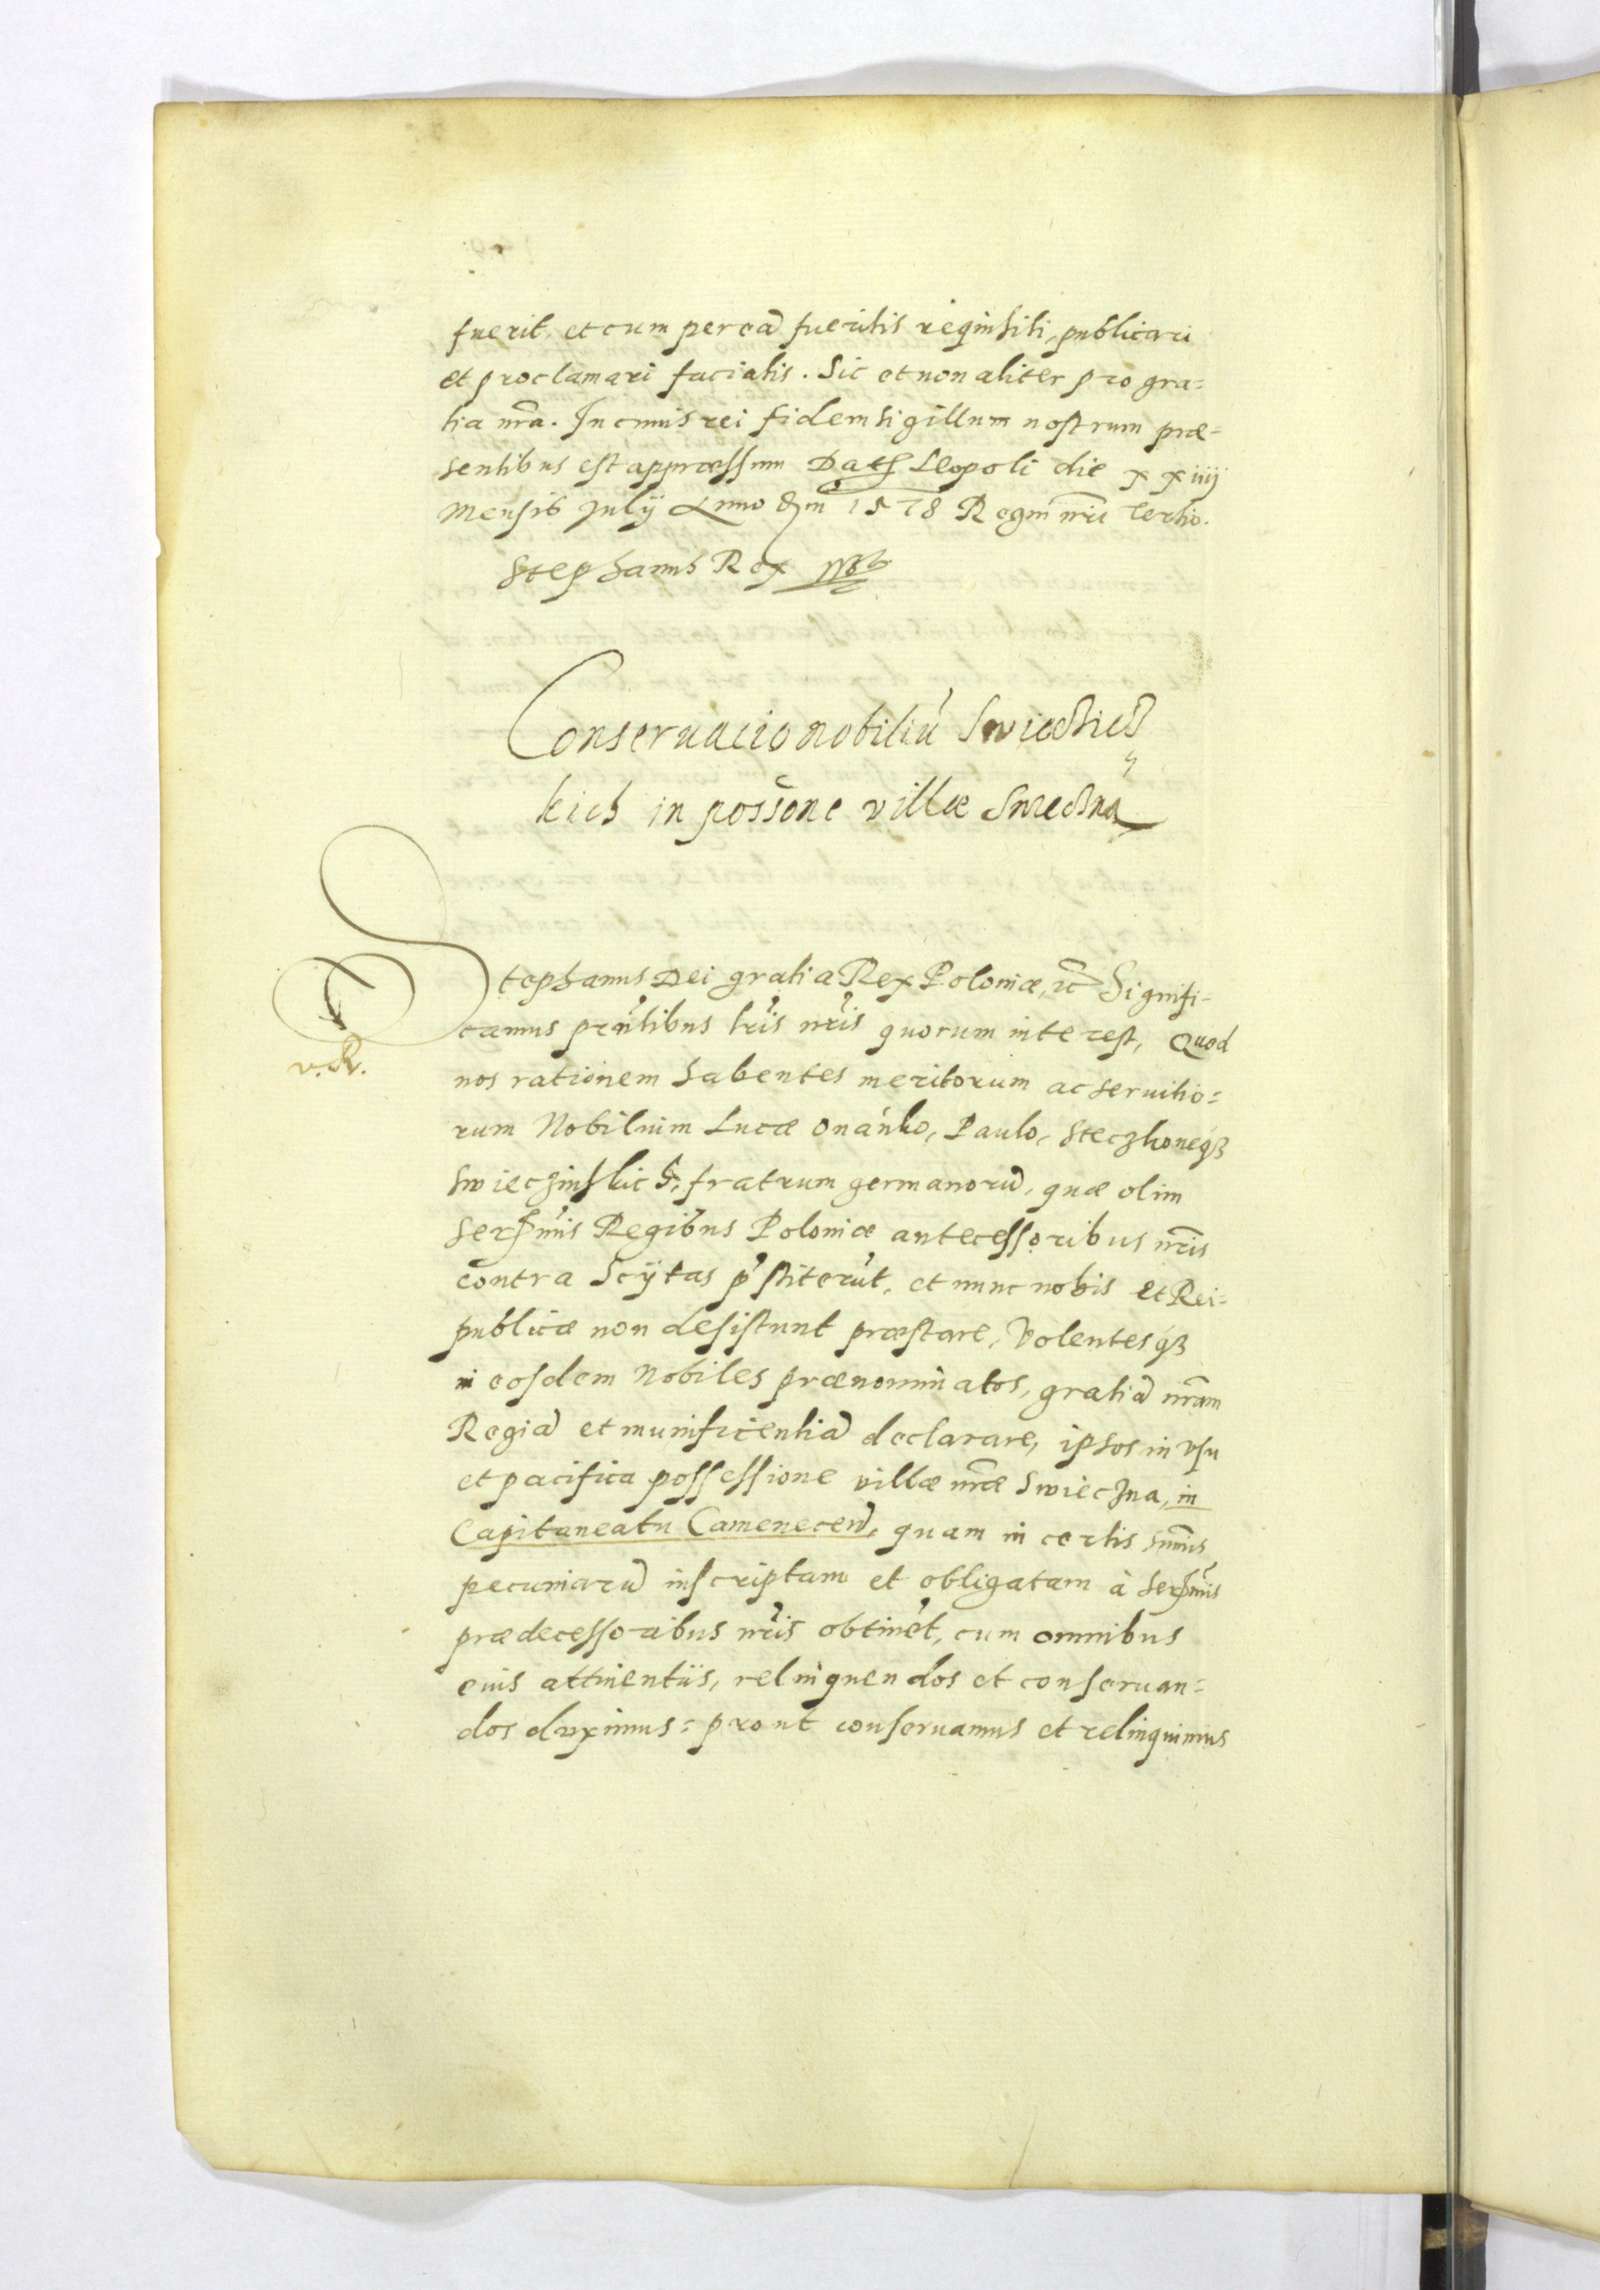 fuerit, et cum per eã fueritis requisiti, publicari
et proclamari faciatis. Sic et non aliter pro gra=
tia nr̃a. In cuius rei fidem sigillum nostrum præ=
sentibus est appræssum Dat Leopoli die xxiiij
Mensis Julÿ Anno Dm̃ 1578 Regni nr̃i tertio.
Stephanus Rex
Conseruacio nobiliũ Swieczics
kich in possõne villæ Swieczna
Stephanus Dei gratia Rex Poloniæ, etc̃ Signifi-
camus præñtibus lr̃is nr̃is quorum interest, Quod
nos rationem habentes meritorum ac seruitio=
rum Nobilium Lucæ Onańko, Paulo, Steczkoneqȝ
Swieczinskich, fratrum germanorũ, quæ olim
Serẽnis Regibus Poloniæ antecessoribus nr̃is
contra Scÿtas p̃stiterũt, et nunc nobis et Rei-
publicæ non desistunt præstare, Volentesqȝ
in eosdem Nobiles prænominatos, gratiã nr̃am
Regiã et munificentiã declarare, ipsos in vsu
et pacifica possessione villæ nr̃æ Swieczna, in
Capitaneatu Camenecen̄, quam in certis sum̃is
pecuniarũ inscriptam et obligatam à Serẽmis
prædecessoribus nr̃is obtinẽt, cum omnibus
eius attinentiis, relinquendos et conseruan=
dos duximus: prout conseruamus et relinquimus
v. R.